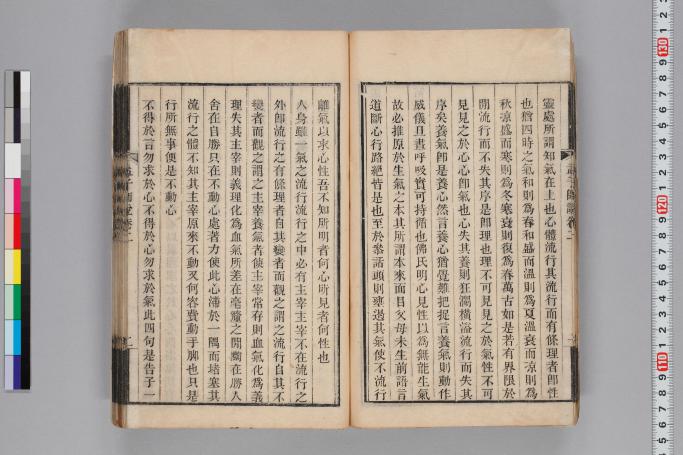 靈處所謂知氣在上也心體流行其流行而有條理者卽性
也猶四時之氣和則爲春和盛而溫則爲夏溫衰而涼則爲
秋涼盛而寒則爲冬寒衰則復爲春萬古如是若有界限於
間流行而不失其序是卽理也理不可見見之於氣性不可
見見之於心心卽氣也心失其養則狂瀾橫溢流行而失其
序矣養氣卽是養心然言養心猶覺難把捉言養氣則動作
威儀旦晝呼吸實可持循也佛氏明心見性以爲無能生氣
故必推原於生氣之本其所謂本來面目父母未生前語言
道斷心行路絕皆是也至於參話頭則壅遏其氣使不流行
離氣以求心性吾不知所明者何心所見者何性也
人身雖一氣之流行流行之中必有主宰主宰不在流行之
外卽流行之有條理者自其變者而觀之謂之流行自其不
變者而觀之謂之主宰養氣者使主宰常存則血氣化爲義
理失其主宰則義理化爲血氣所差在毫釐之間黝在勝人
舍在自勝只在不動心處著力使此心滯於一隅而堵塞其
流行之體不知其主宰原來不動又何容費動手腳也只是
行所無事便是不動心
不得於言勿求於心不得於心勿求於氣此四句是告子一
孟子師說卷二